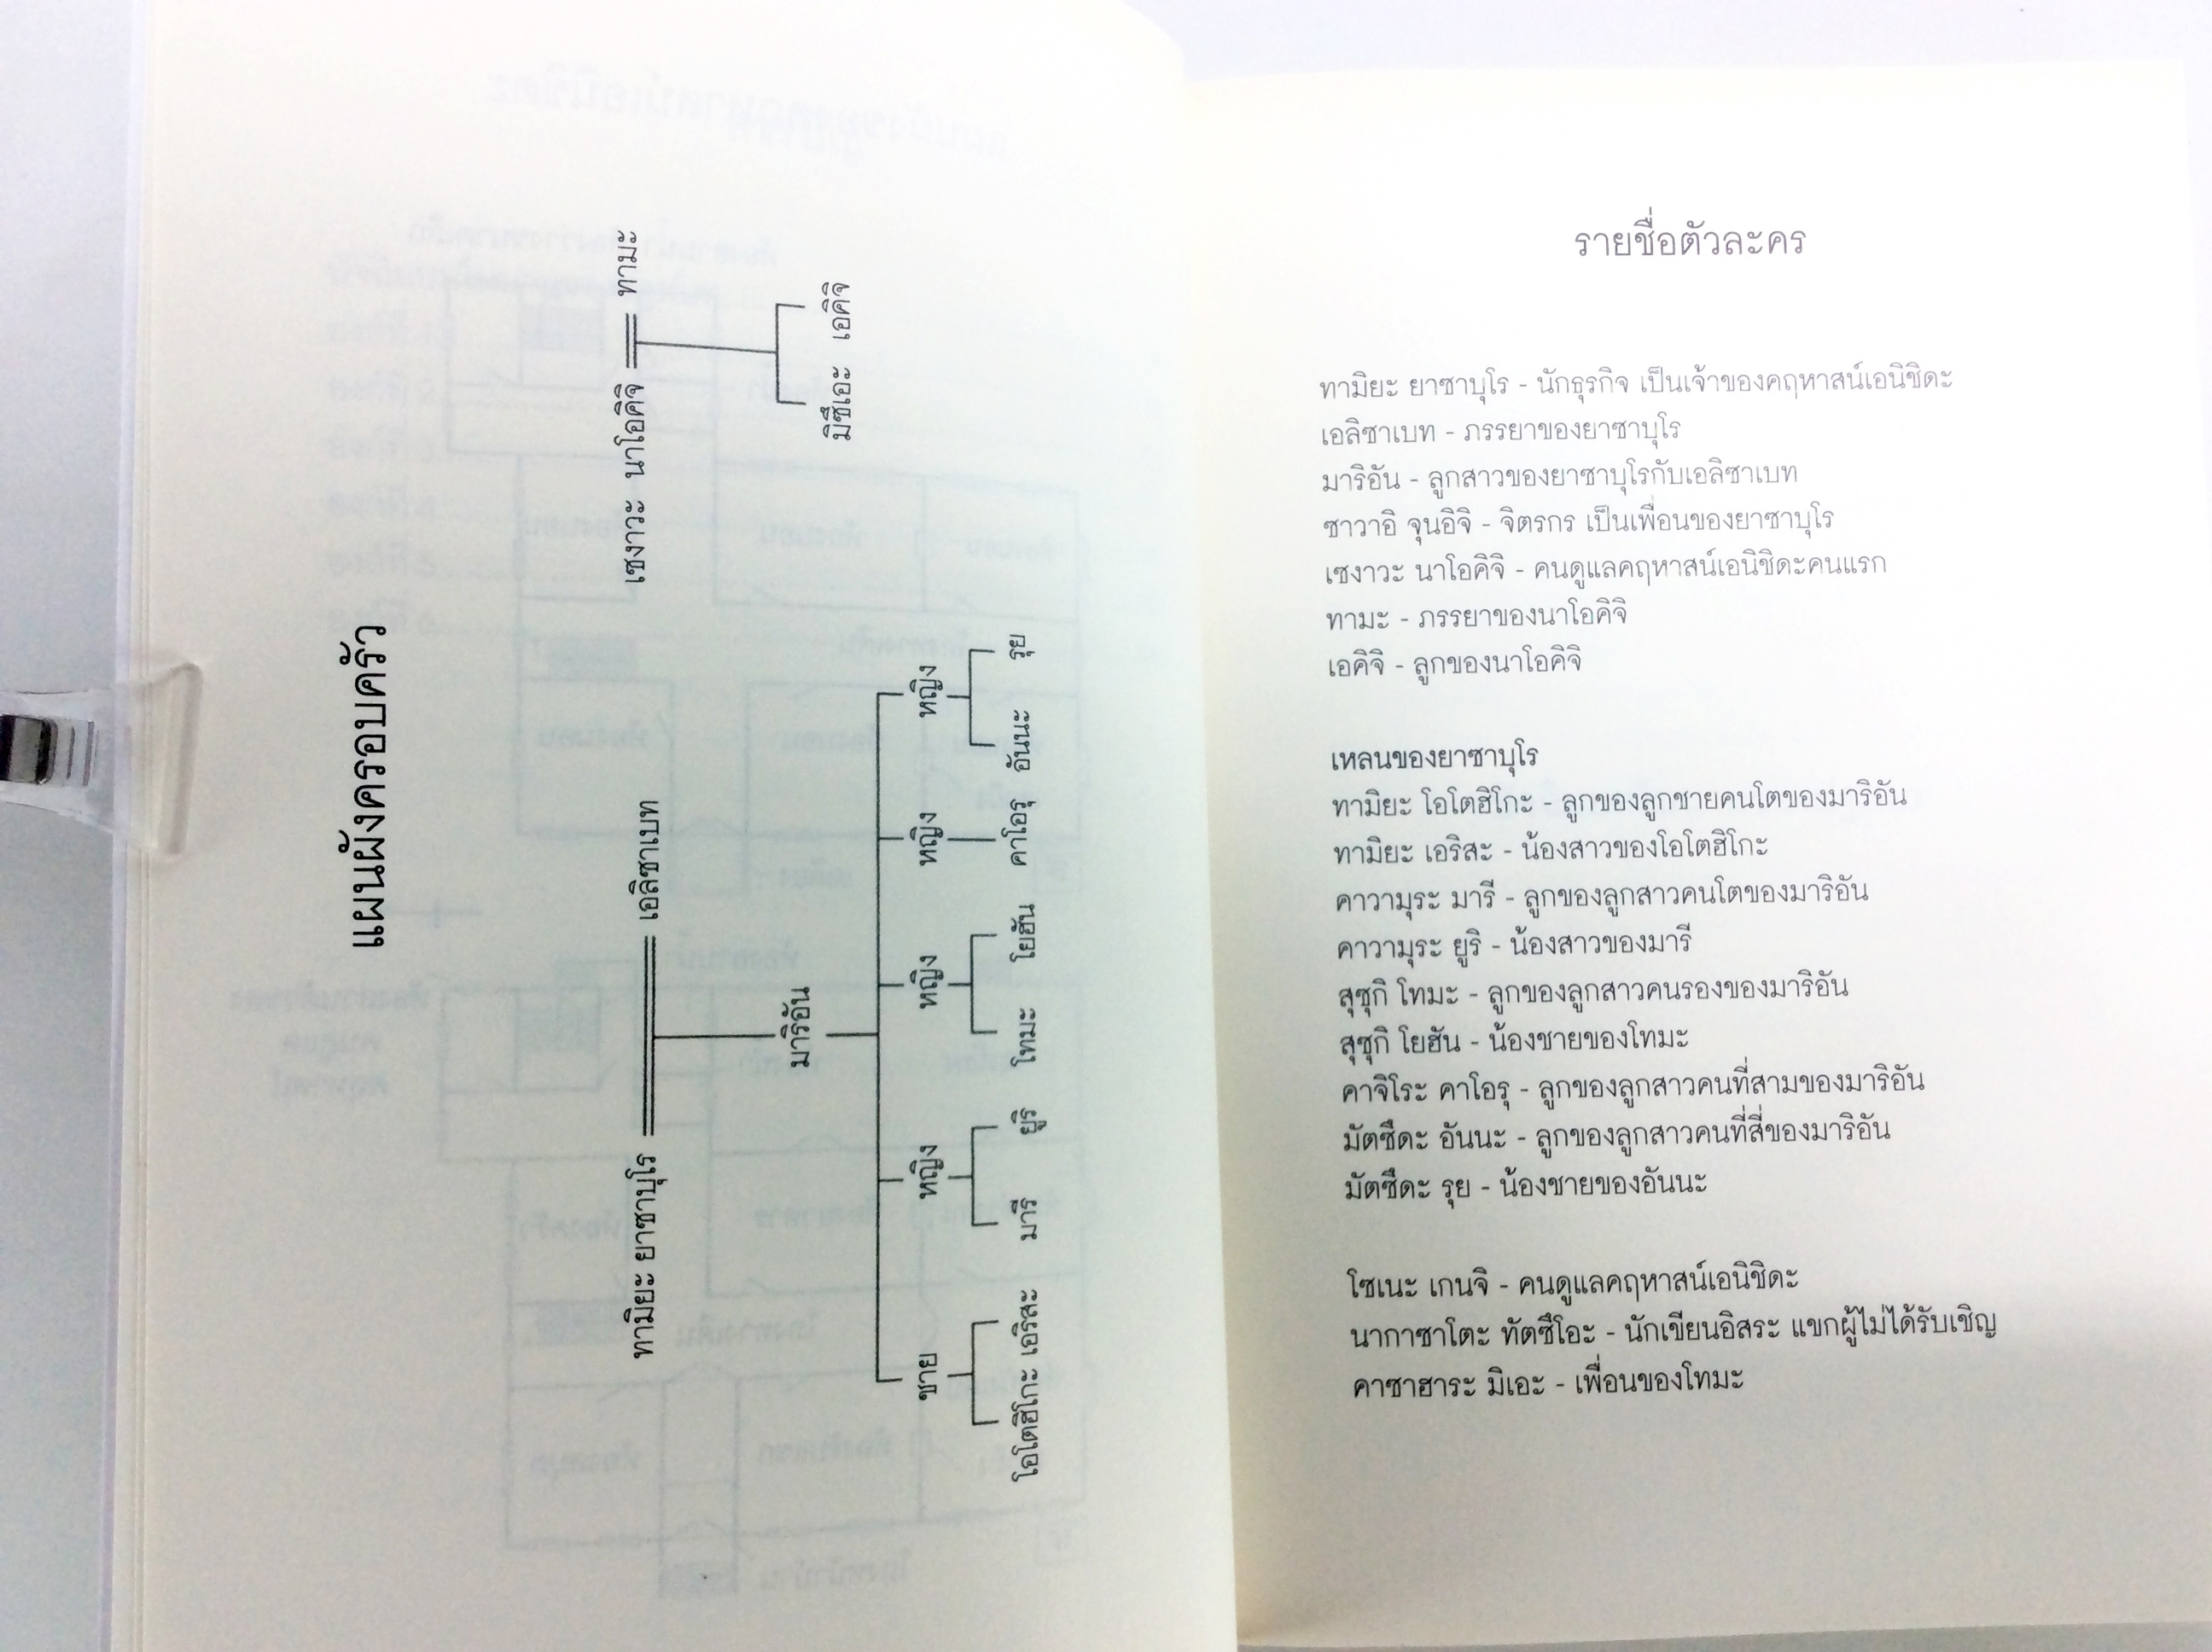 แผนผังครอบครัว
ทามิยะ ยาซาบุโร เอลิซาเบท เซงาวะ นาโอคิจิ ทามะ
มาริอัน มิซึเอะ เอคิจิ
ชาย หญิง หญิง หญิง หญิง
โอโตฮิโกะ เอริสะ มารี ยูริ โทมะ โยฮัน คาโอรุ อันนะ รุย
รายชื่อตัวละคร
ทามิยะ ยาซาบุโร - นักธุรกิจ เป็นเจ้าของคฤหาสน์เอนิชิดะ
เอลิซาเบท - ภรรยาของยาซาบุโร
มาริอัน - ลูกสาวของยาซาบุโรกับเอลิซาเบท
ซาวาอิ จุนอิจิ - จิตรกร เป็นเพื่อนของยาซาบุโร
เซงาวะ นาโอคิจิ - คนดูแลคฤหาสน์เอนิชิดะคนแรก
ทามะ - ภรรยาของนาโอคิจิ
เอคิจิ - ลูกของนาโอคิจิ
เหลนของยาซาบุโร
ทามิยะ โอโตฮิโกะ - ลูกของลูกชายคนโตของมาริอัน
ทามิยะ เอริสะ - น้องสาวของโอโตฮิโกะ
คาวามุระ มารี - ลูกของลูกสาวคนโตของมาริอัน
คาวามุระ ยูริ - น้องสาวของมารี
สุซุกิ โทมะ - ลูกของลูกสาวคนรองของมาริอัน
สุซุกิ โยฮัน - น้องชายของโทมะ
คาจิโระ คาโอรุ - ลูกของลูกสาวคนที่สามของมาริอัน
มัตซึดะ อันนะ - ลูกของลูกสาวคนที่สี่ของมาริอัน
มัตซึดะ รุย - น้องชายของอันนะ
โซเนะ เกนจิ - คนดูแลคฤหาสน์เอนิชิดะ
นากาซาโตะ ทัตซึโอะ - นักเขียนอิสระ แขกผู้ไม่ได้รับเชิญ
คาซาฮาระ มิเอะ - เพื่อนของโทมะ